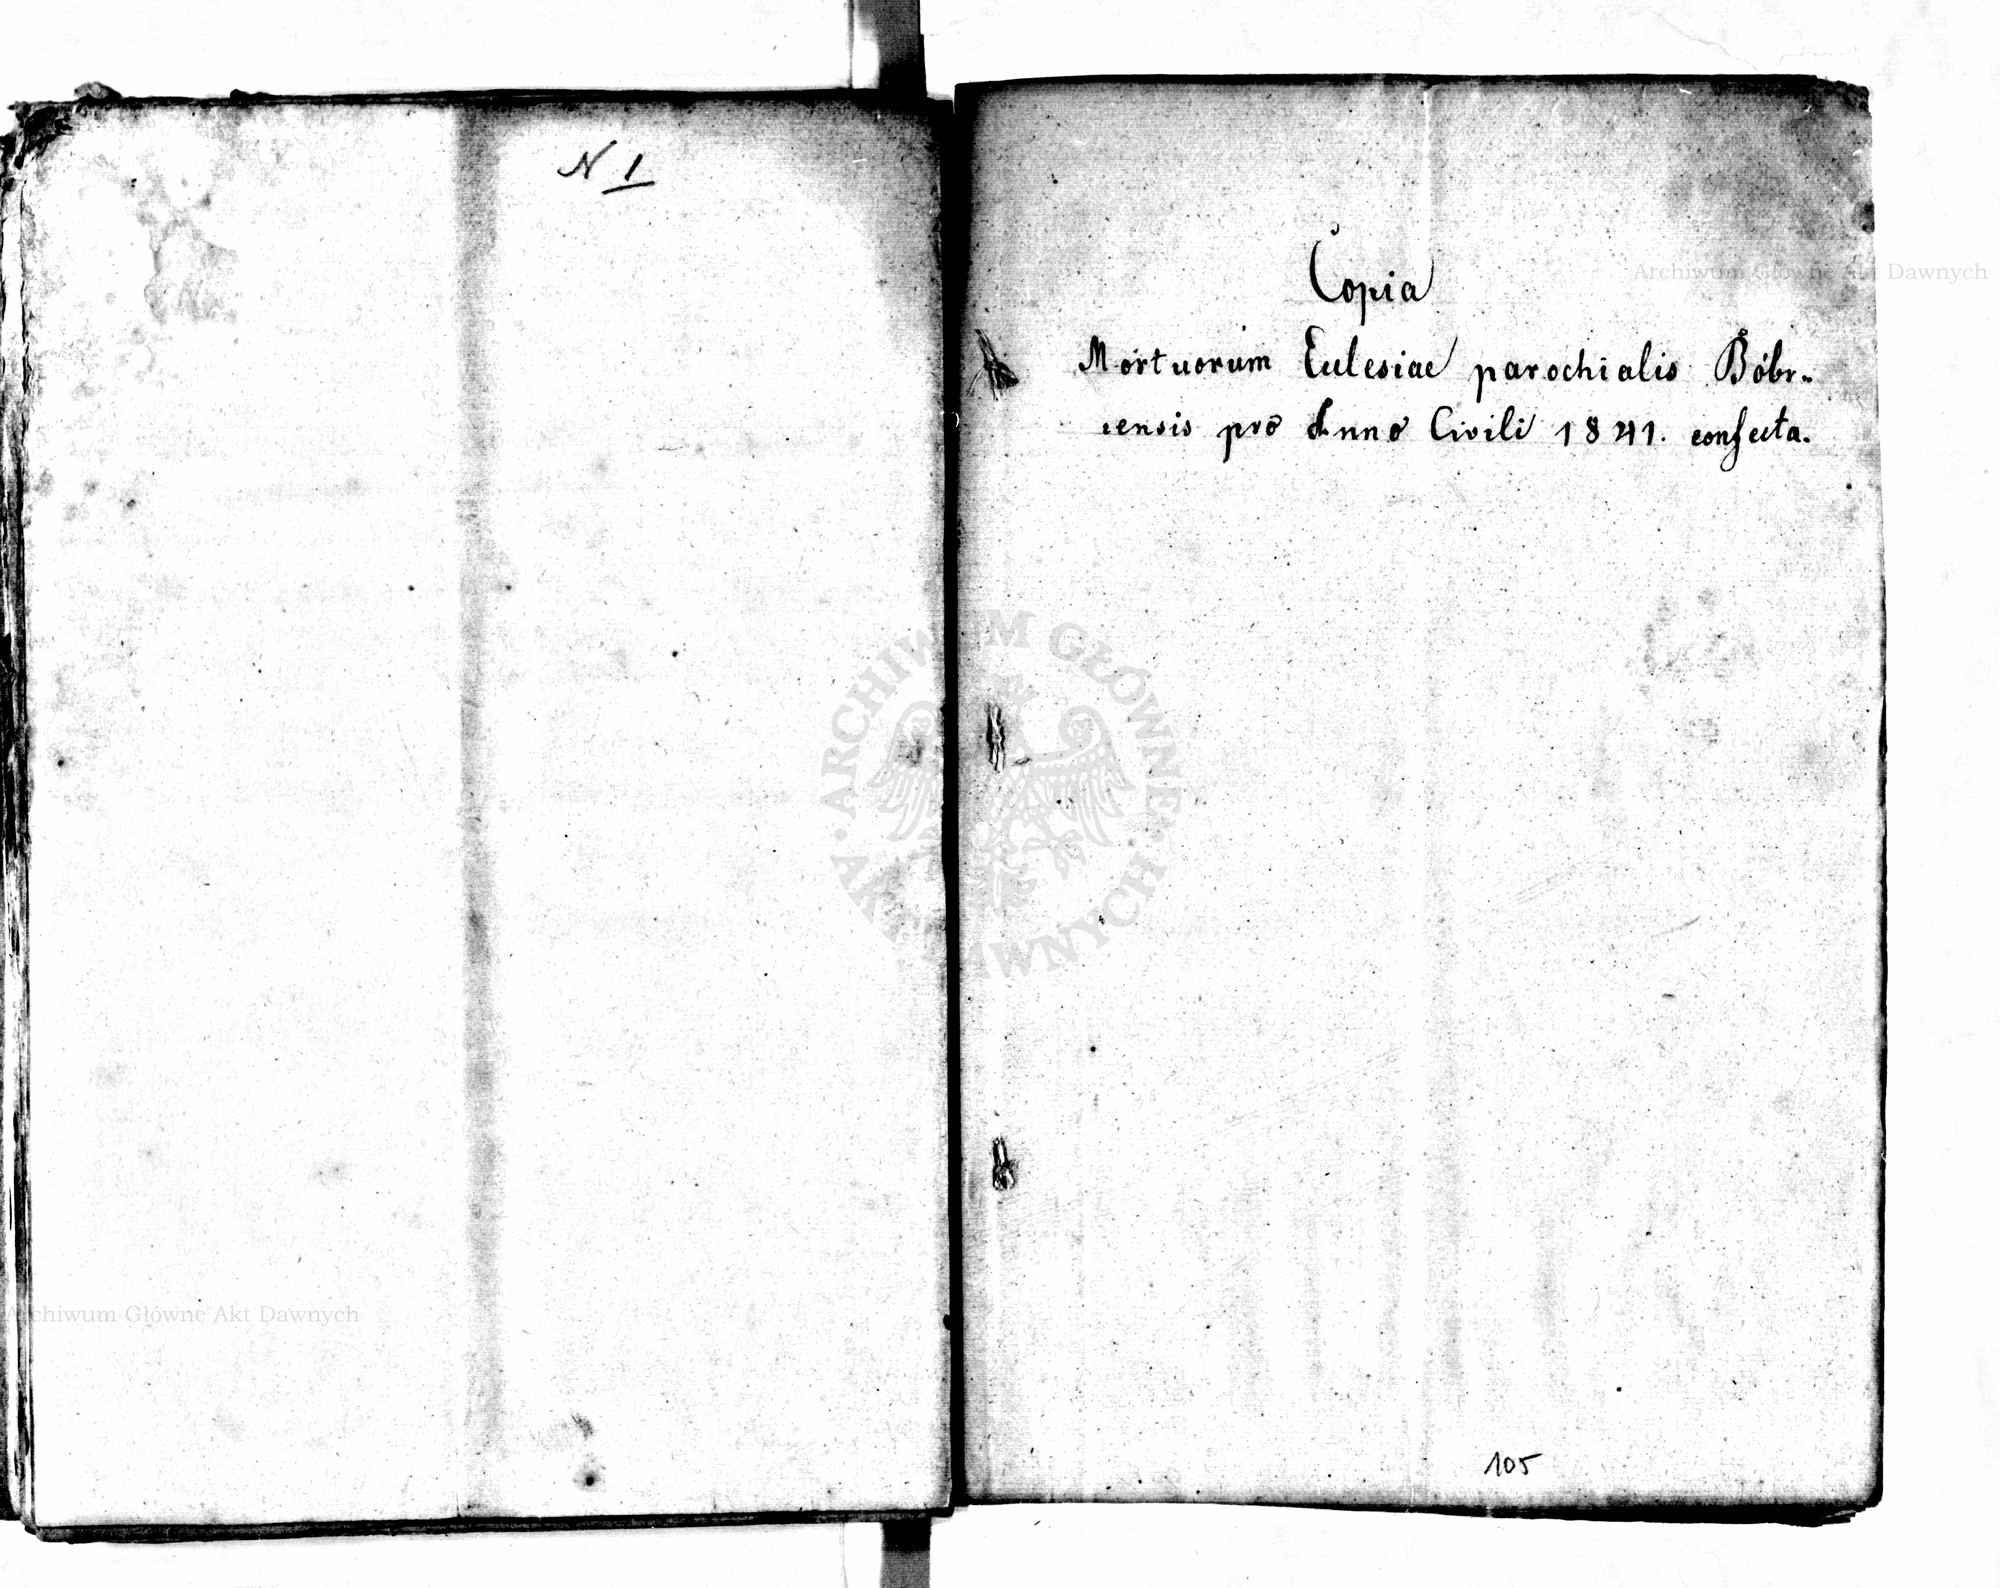 N 1
Copia
Mortuorum Ecclesiae parochialis Bóbr-
censis pro Anno Civili 1841. confecta.
105
Archiwum Główne Akt Dawnych
ARCHIWUM GŁÓWNE
AKT DAWNYCH
Archiwum Główne Akt Dawnych